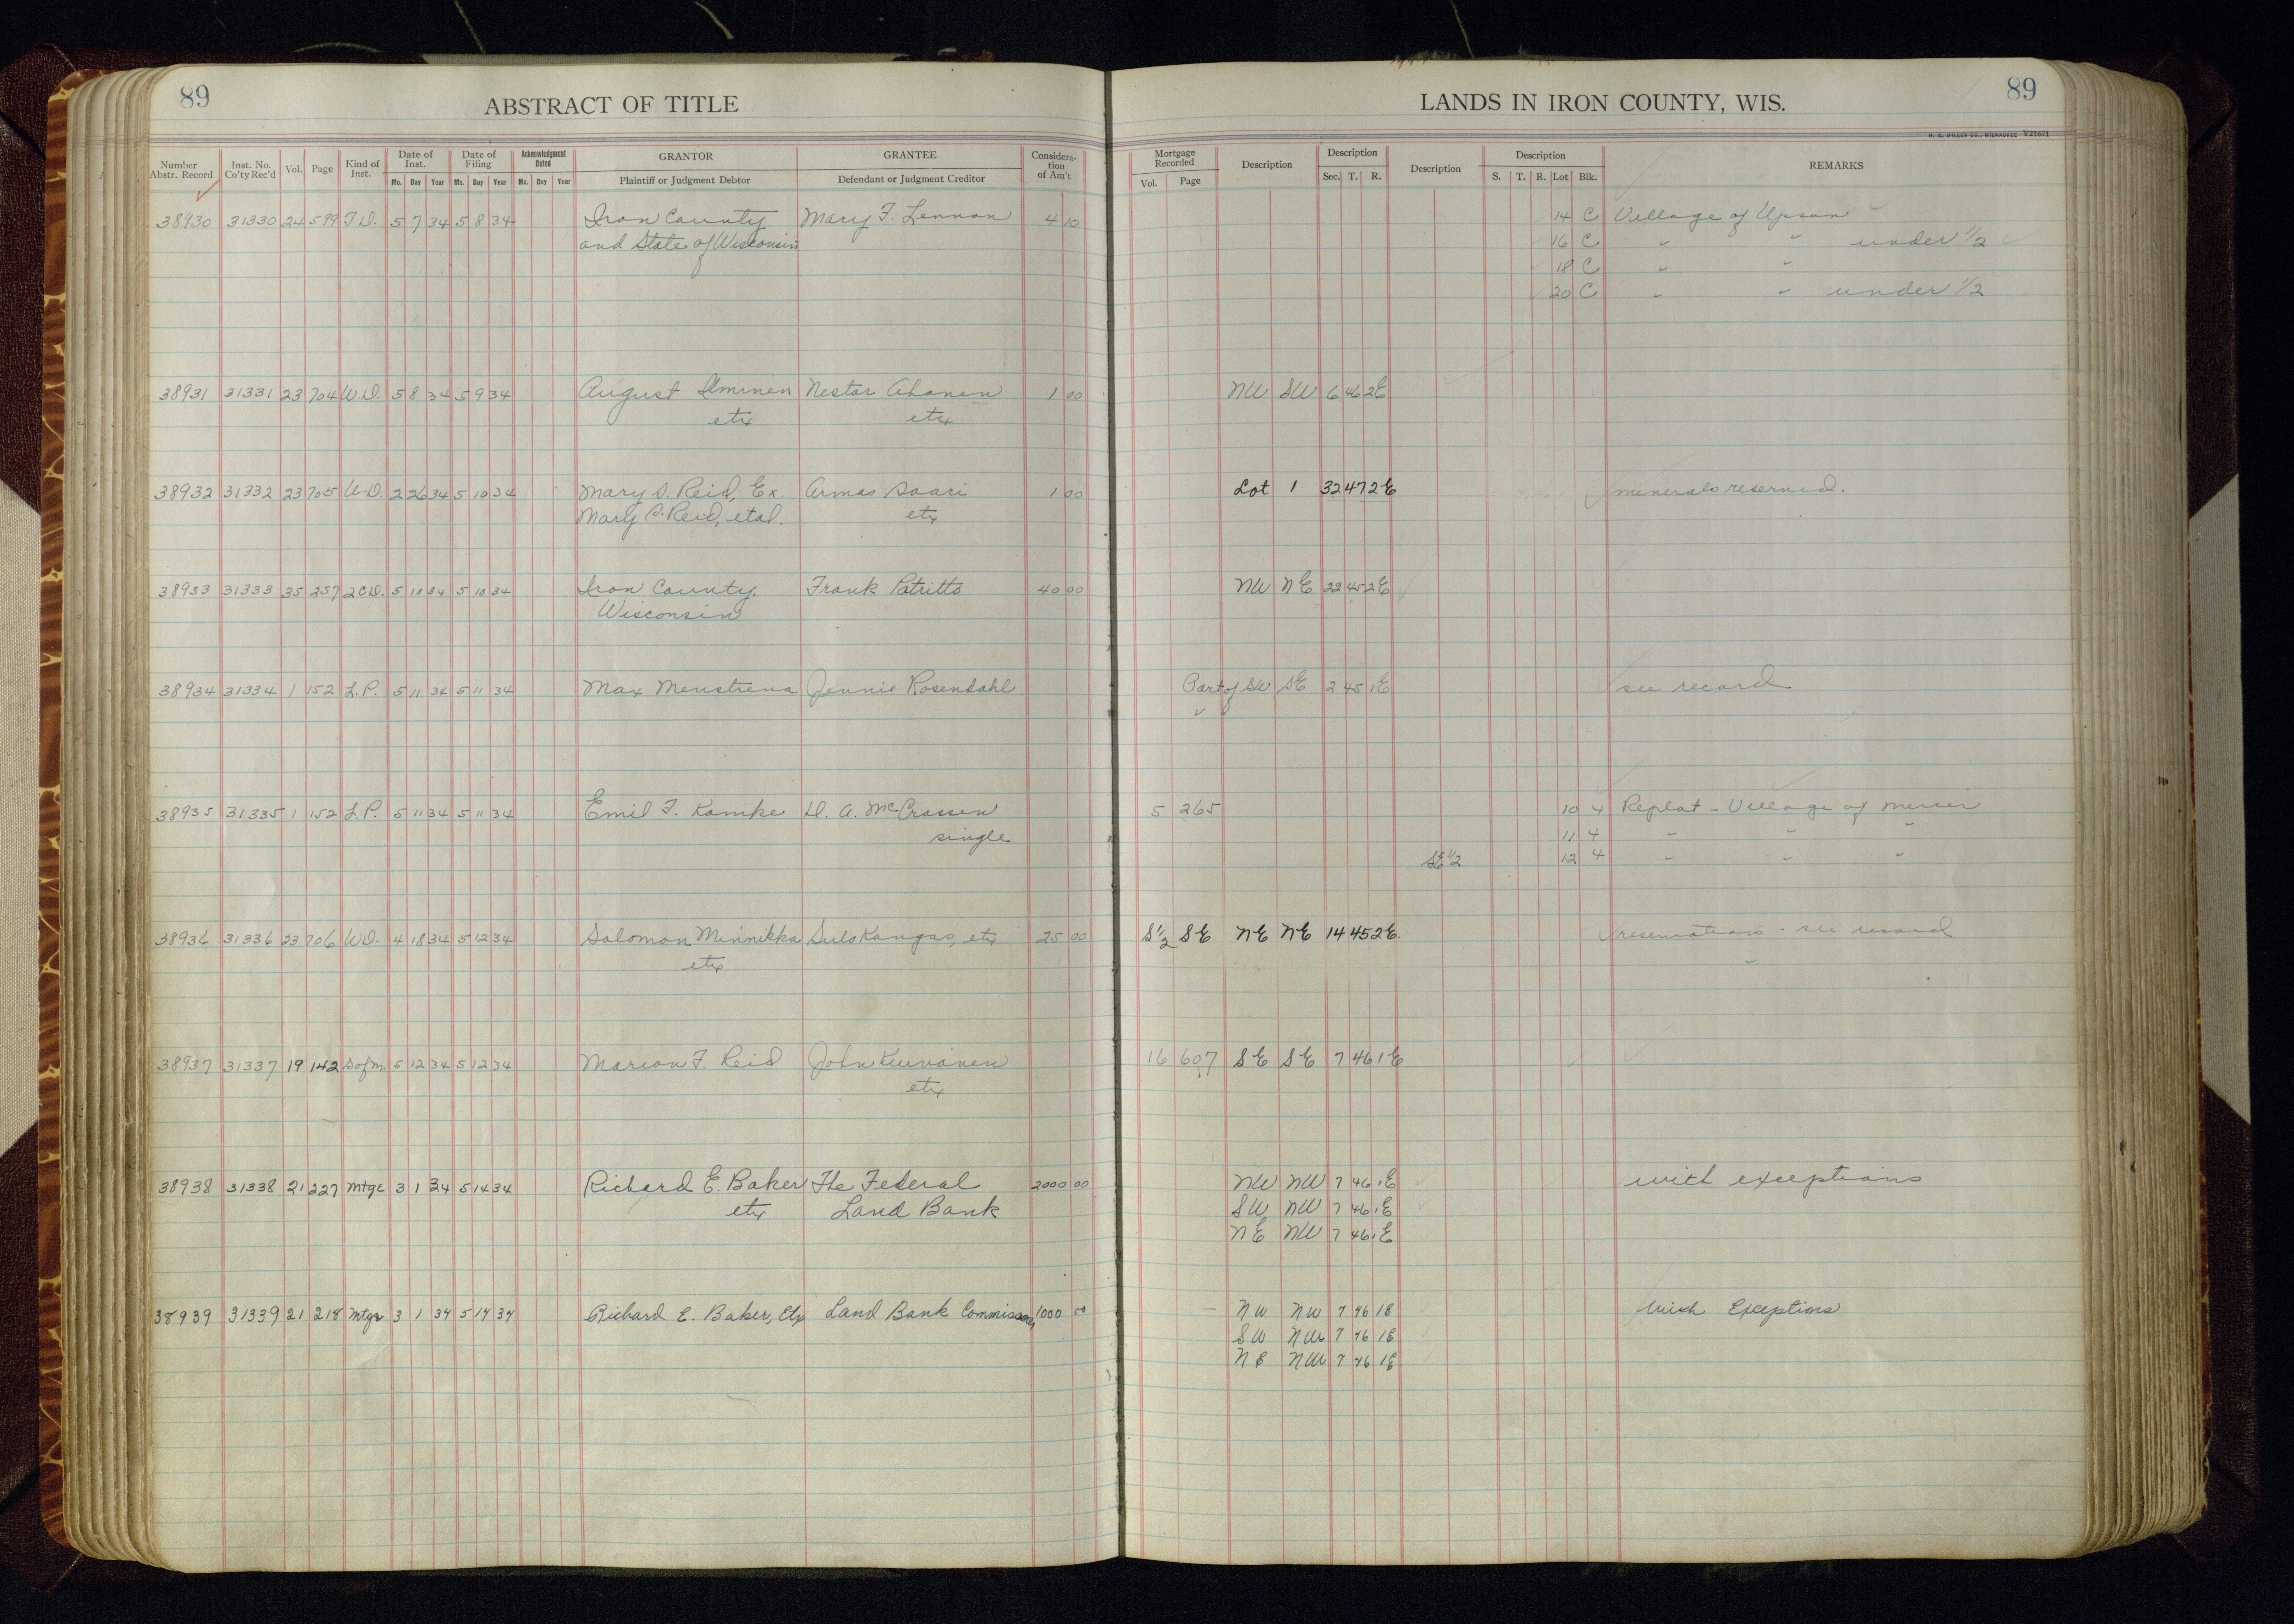 89
ABSTRACT OF TITLE
LANDS IN IRON COUNTY, WIS.
89
H. C. MILLER CO., MILWAUKEE Y21671
Number Abstr. Record Inst. No. Co'ty Rec'd Vol. Page Kind of Inst. Date of Inst. Mo. Day Year Date of Filing Mo. Day Year Acknowledgment Dated Mo. Day Year GRANTOR Plaintiff or Judgment Debtor GRANTEE Defendant or Judgment Creditor Considera-tion of Am't Mortgage Recorded Vol. Page Description Description Sec. T. R. Description Description S. T. R. Lot Blk. REMARKS
38930 31330 24 599 T.D. 5 7 34 5 8 34 Iron County Mary F. Lennon 4 10 14 C Village of Upson
and State of Wisconsin 16 C " " under 1/2
18 C " "
20 C " " under 1/2
38931 31331 23 704 W.D. 5 8 34 5 9 34 August Ilminen Nestor Ahonen 1 00 NW SW 6 46 2E
etux etux
38932 31332 23 705 W.D. 2 26 34 5 10 34 Mary D. Reid, Ex. Armas Saari 1 00 Lot 1 32 47 2E minerals reserved.
Mary D. Reid, etal. etux
38933 31333 25 257 2CD. 5 10 34 5 10 34 Iron County, Frank Patritto 40 00 NW NE 22 45 2E
Wisconsin
38934 31334 1 152 L.P. 5 11 34 5 11 34 Max Jennie Rosendahl Part of SW SE 2 45 1E see record
38935 31335 1 152 L.P. 5 11 34 5 11 34 Emil F. Kamke D. A. McCrossen 5 265 10 4 Replat - Village of Mercer
single 11 4 " " "
SE 1/2 12 4 " " "
38936 31336 23 706 W.D. 4 18 34 5 12 34 Solomon Minnikka Sulo Kangas, etux 25 00 S1/2 SE NE NE 14 45 2E. reservations - see record
etux
38937 31337 19 142 S of M. 5 12 34 5 12 34 Marion F. Reid John 16 607 SE SE 7 46 1E
etux
38938 31338 21 227 Mtge 3 1 34 5 14 34 Richard E. Baker The Federal 2000 00 NW NW 7 46 1E with exceptions
etux Land Bank SW NW 7 46 1E
NE NW 7 46 1E
38939 31339 21 218 Mtge 3 1 34 5 14 34 Richard E. Baker, Etux Land Bank Commissioner 1000 00 NW NW 7 46 1E With Exceptions
SW NW 7 46 1E
NE NW 7 46 1E